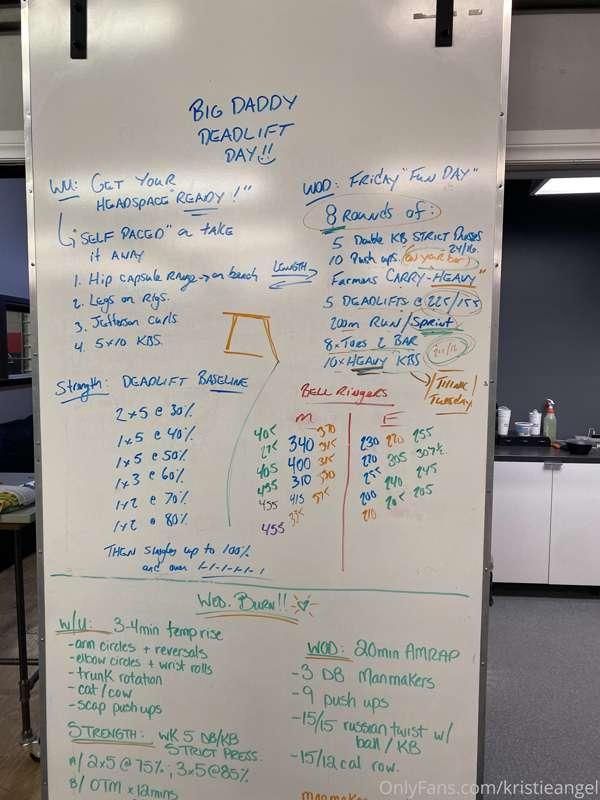 BIG DADDY
DEADLIFT
DAY!!
WU: GET YOUR
HEADSPACE "READY!"
"SELF PACED" or TAKE
it AWAY
1. Hip capsule range → on bench
2. Legs on Rigs.
3. Jefferson curls
4. 5x10 KBS.
WOD: FRIDAY "FUN DAY"
8 Rounds of:
5 Double KB STRICT Presses
24/16
10 Push ups. (on your bar)
LENGTH
Farmers CARRY-HEAVY"
5 DEADLIFTS @ 225/155
200m RUN/Sprint
8x Toes 2 BAR
10x HEAVY KBS
THINK
TUESDAY
Strength: DEADLIFT BASELINE
2x5 @ 30%
1x5 @ 40%
1x5 @ 50%
1x3 @ 60%
1x2 @ 70%
1x2 @ 80%
THEN singles up to 100%
and over 1-1-1-1-1-1
BELL RINGERS
M
F
405
340
400
405
310
415
455
455
230
220
255
220
305
307½
255
240
245
200
205
205
210
WED. BURN!!
W/U: 3-4min temp rise
-arm circles + reversals
-elbow circles + wrist rolls
-trunk rotation
-cat/cow
-scap push ups
STRENGTH: WK 5 DB/KB
STRICT PRESS.
A/ 2x5 @ 75%; 3x5 @ 85%
B/ OTM x 12mins
WOD: 20min AMRAP
-3 DB Manmakers
-9 push ups
-15/15 russian twist w/
ball / KB
-15/12 cal row.
OnlyFans.com/kristieangel